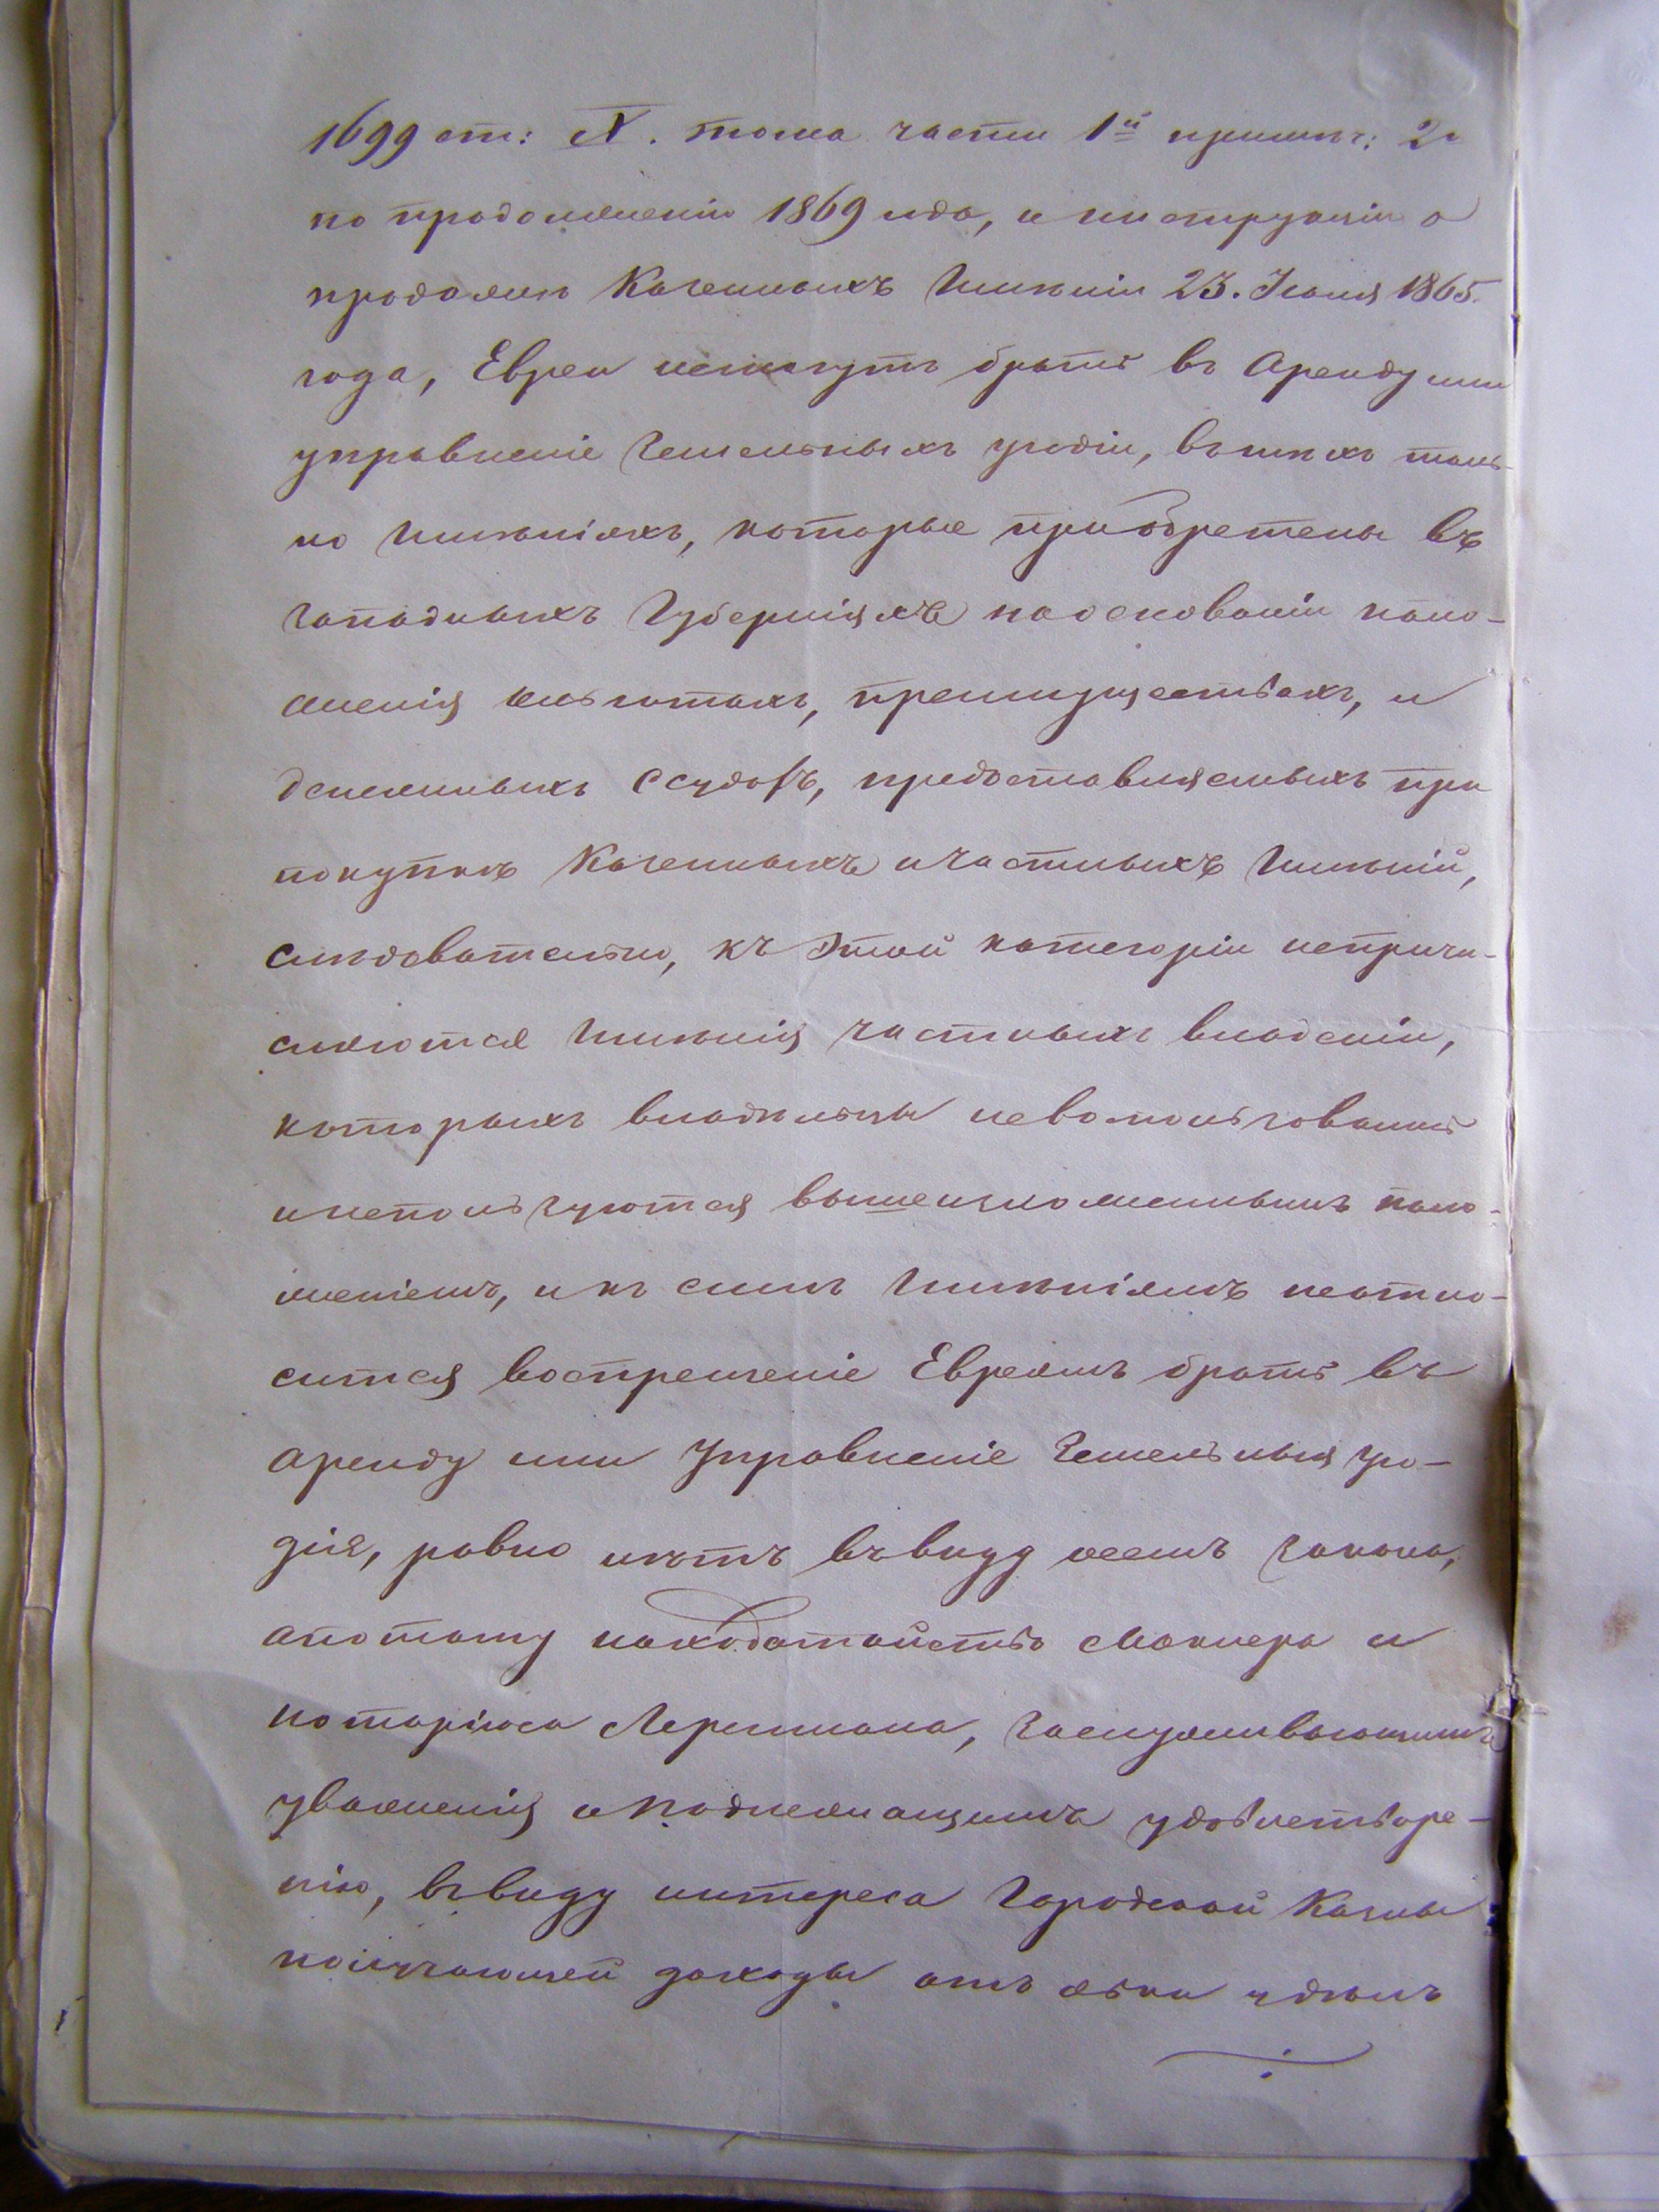 1699 ст: X. тома части 1й примѣч: 2е
по продолженію 1869 года, и инструкціи о
продажѣ Казенныхъ Имѣніи 23. Іюля 1865.
года, Евреи немогутъ брать въ Аренду или
управленіе Земельныхъ угодіи, вътѣхъ толь-
ко Имѣніяхъ, которые приобретены въ
западныхъ Губерніяхъ наоснованіи поло-
женія ольготахъ, преимуществахъ, и
денежныхъ ссудахъ, предоставляемыхъ при
покупкѣ Казенныхъ ичастныхъ Имѣній,
слѣдовательно, къ этой категоріи непричи-
сляются Имѣнія частныхъ владеніи,
которыхъ владѣльцы невоспользовались
инепользуются вышеизложеннымъ поло-
женіемъ, и къ симъ Имѣніямъ неотно-
сится воспрещеніе Евреямъ брать въ
аренду или Управленіе Земельныя уго-
дія, равно нѣтъ ввиду осемъ закона,
апотому находатайство Маклера и
нотаріюса Леремана, заслуживающимъ
уваженія и подлежащимъ удовлетворе-
нію, ввиду интереса Городской Казны
получающей доходы отъ